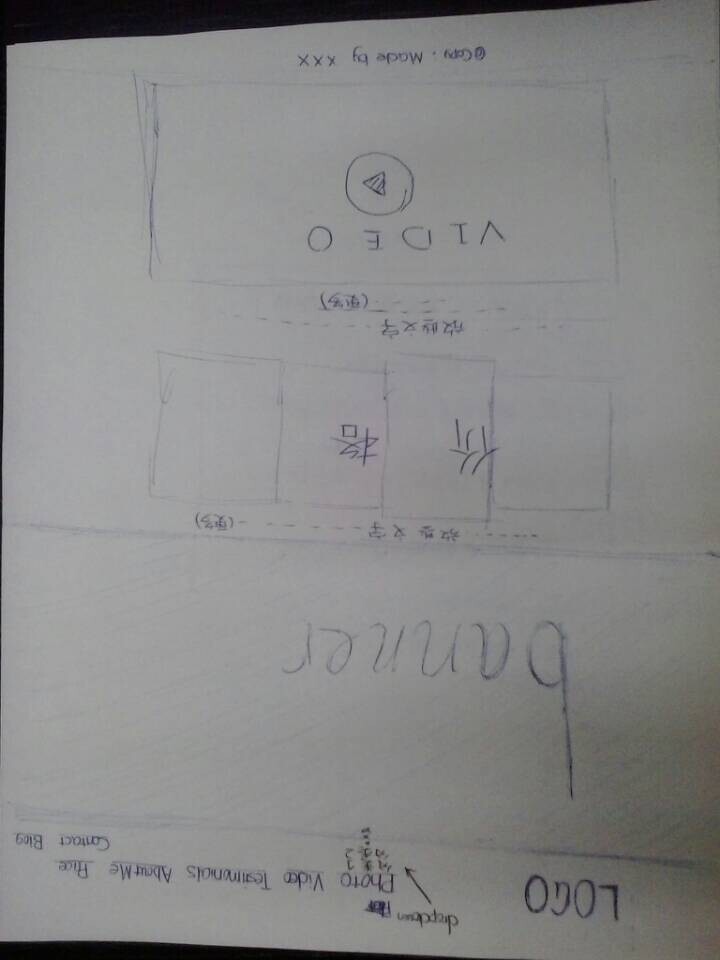 LOGO
dropdown
Photo Video Testimonials AboutMe Price Contact Blog
banner
放些文字 (更多)
价 格
放些文字
(更多)
VIDEO
@Copy. Made by XXX